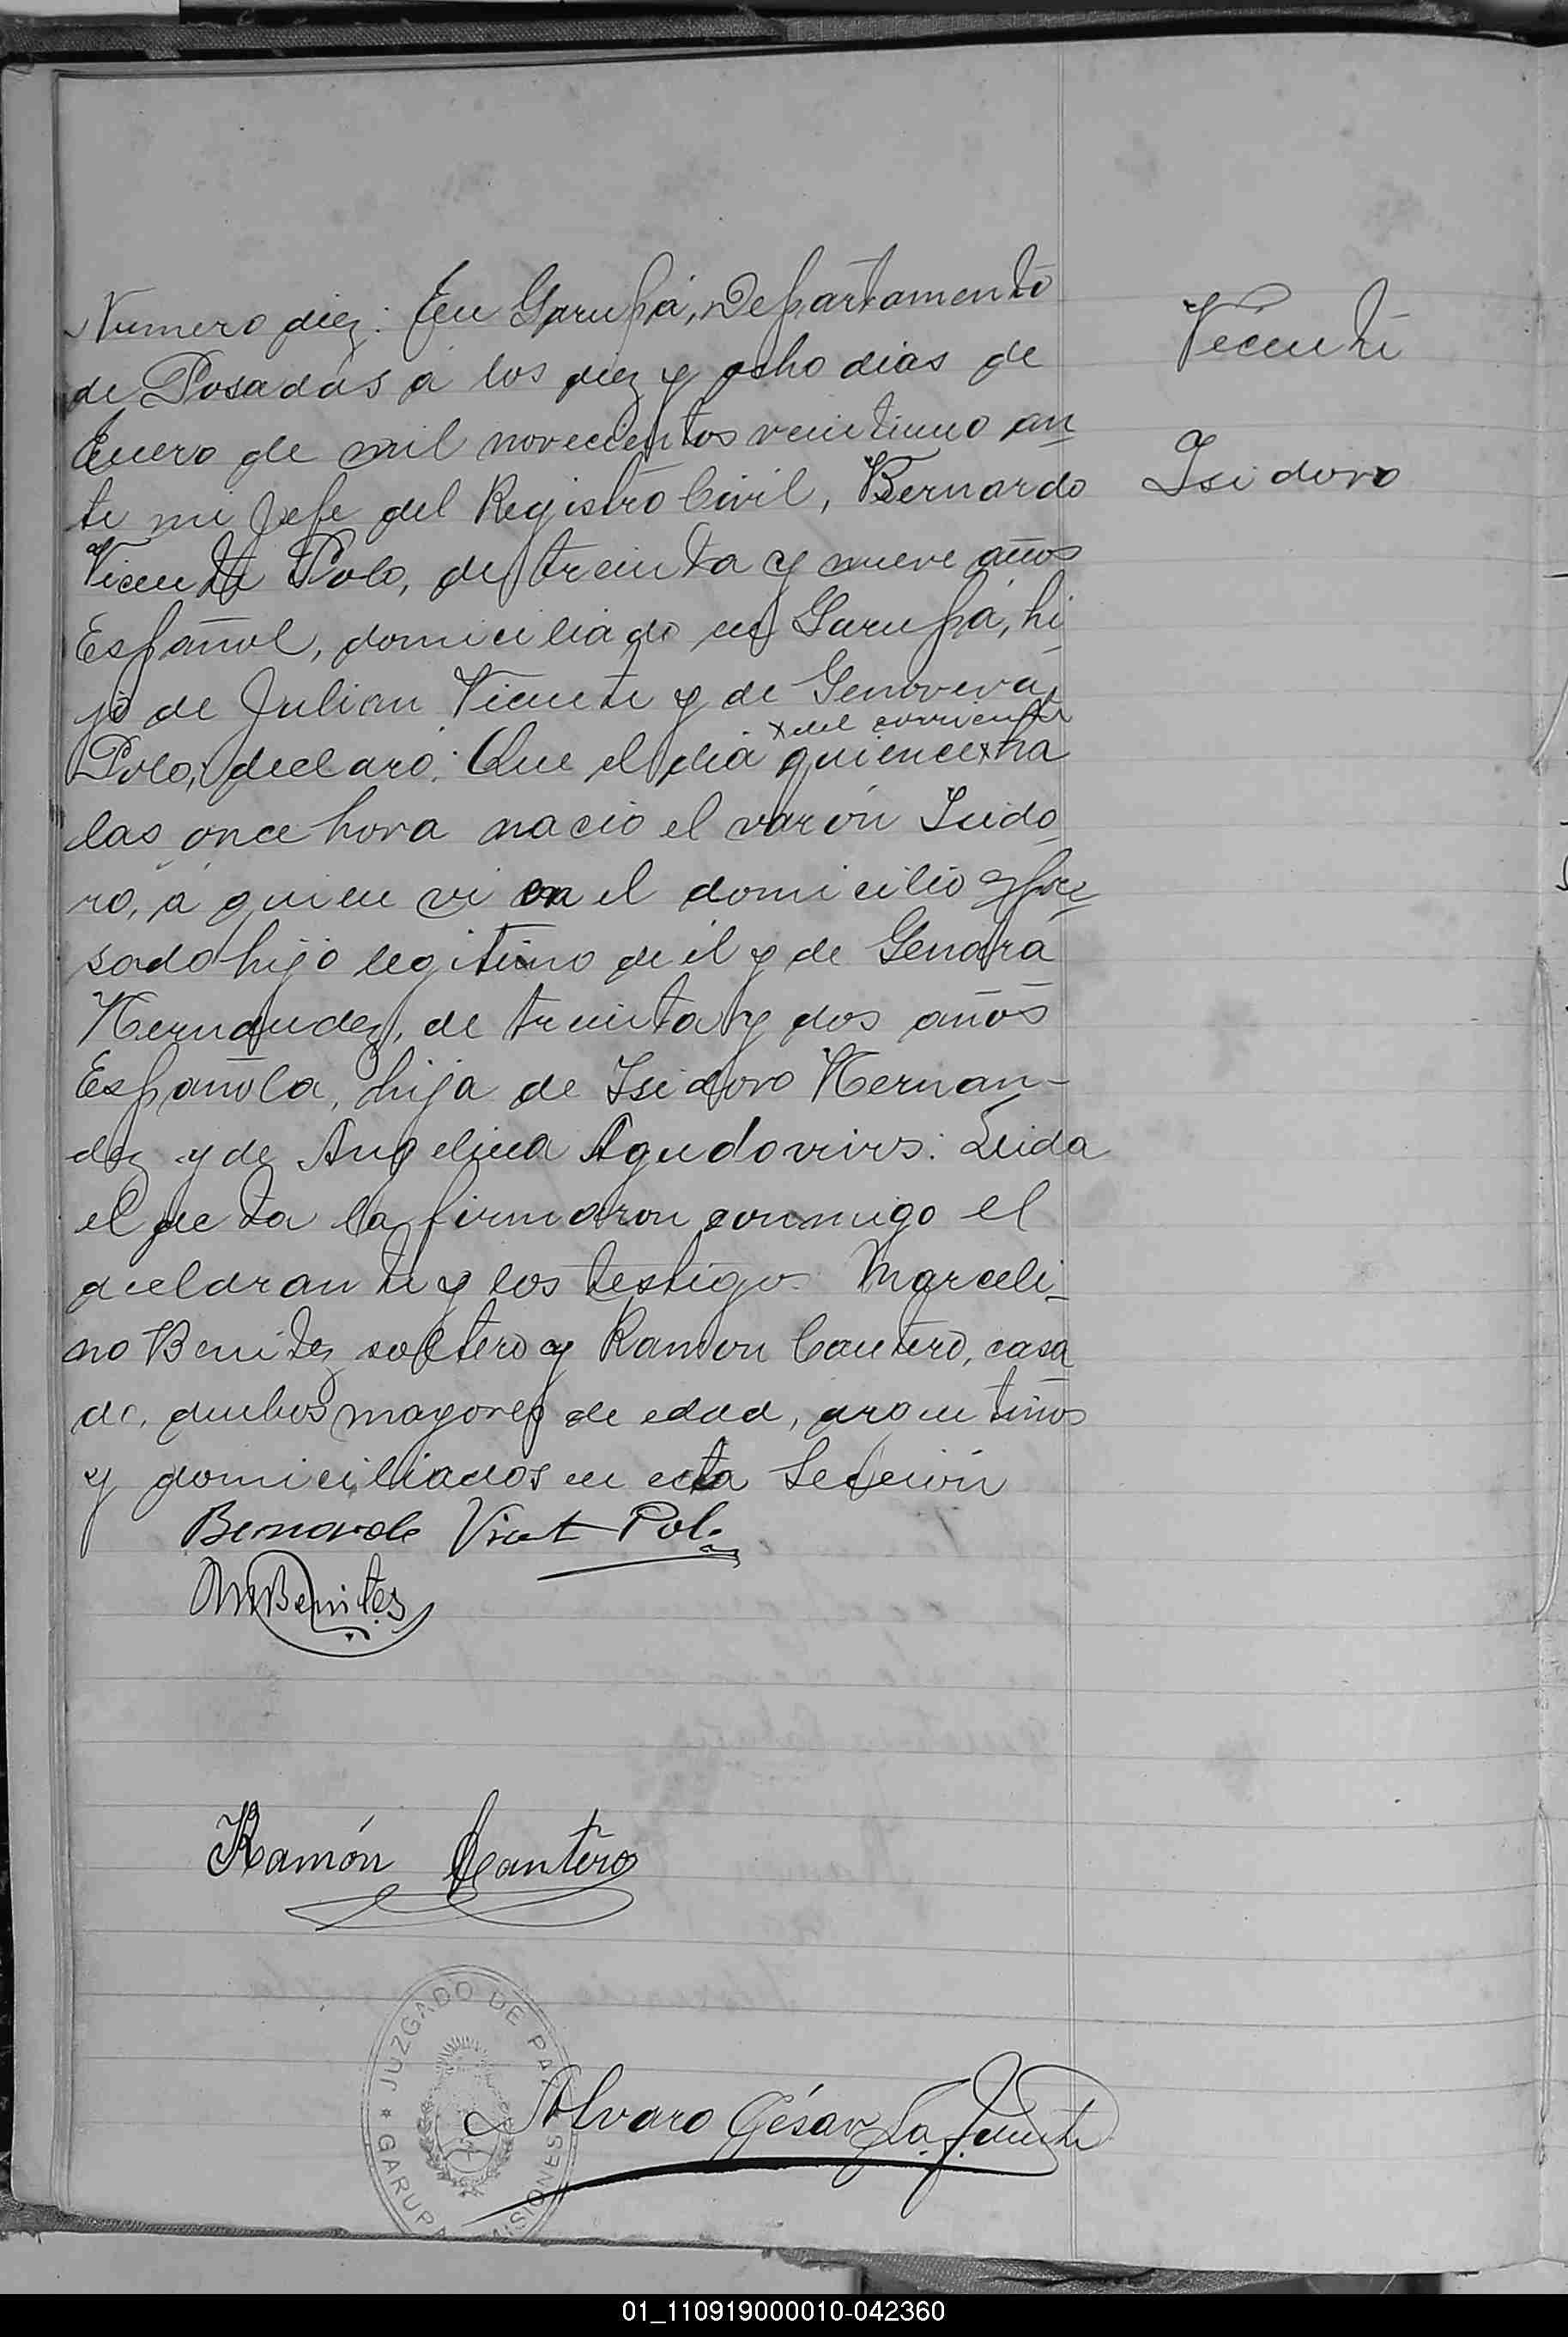 Numero diez: En Garupá, Departamento
de Posadas á los diez y ocho dias de
Enero de mil novecientos veintiuno an-
te mi Jefe del Registro Civil, Bernardo
Vicente Polo, de treinta y nueve años
Español, domiciliado en Garupá, hi-
jo de Julian Vicente y de Genoveva
x del corriente
Polo, declaró: Que el dia quience x ha
las once hora nació el varón Isido-
ro, á quien vi en el domicilio espre-
sado hijo legitimo de él y de Genara
Hernandez, de treinta y dos años
Española, hija de Isidoro Hernan-
dez y de Angelina Agudo vivos: Leida
el acta la firmaron conmigo el
declarante y los testigos Marceli-
no Benitez soltero y Ramon Cantero, casa-
do, ambos mayores de edad, argentinos
y domiciliados en esta Sección
Vicente
Isidoro
Bernardo Vicet Polo
M Benites
Ramón Cantero
JUZGADO DE PAZ
* GARUPA MISIONES
Alvaro César La Fuente
01_110919000010-042360